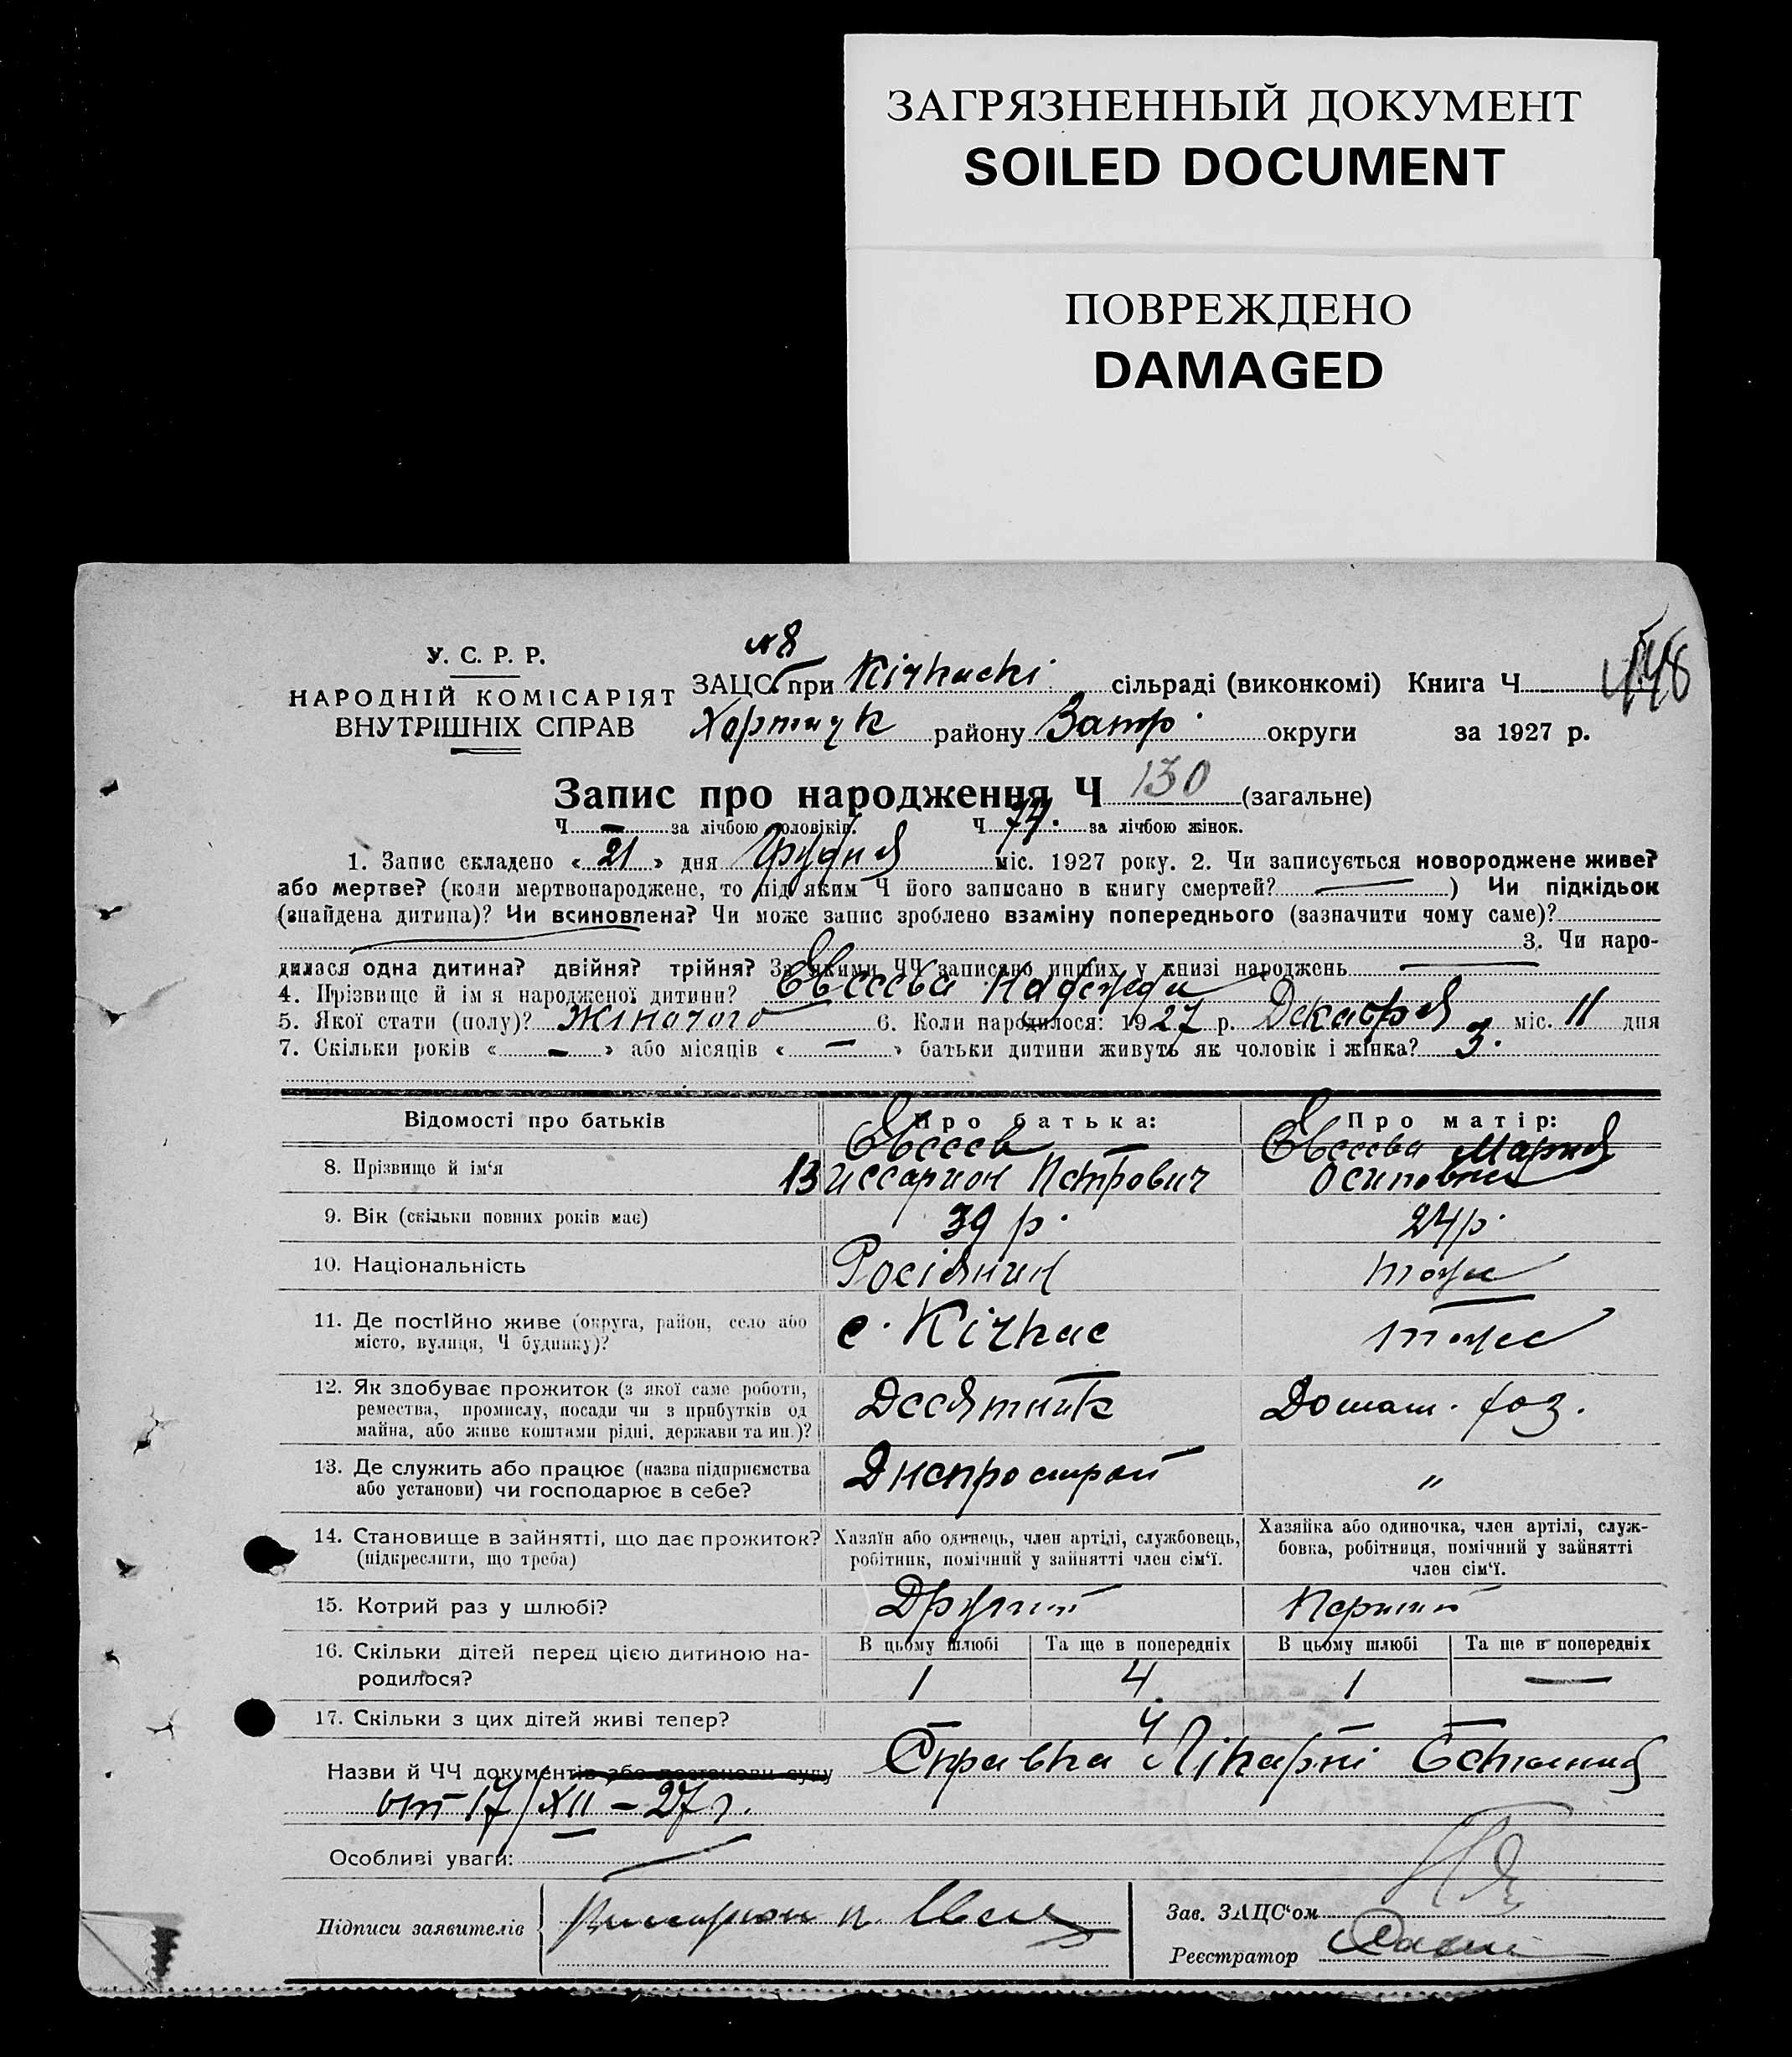 ЗАГРЯЗНЕННЫЙ ДОКУМЕНТ
SOILED DOCUMENT
ПОВРЕЖДЕНО
DAMAGED
У. С. Р. Р.
НАРОДНІЙ КОМІСАРІЯТ
ВНУТРІШНІХ СПРАВ
№ 8
ЗАЦС при Кічкаскі сільраді (виконкомі) Книга Ч
Хортицьк району Запор. округи за 1927 р.
Запис про народження Ч 130 (загальне)
Ч — за лічбою чоловіків. Ч 74. за лічбою жінок.
1. Запис складено « 21 » дня Грудня міс. 1927 року. 2. Чи записується новороджене живе?
або мертве? (коли мертвонароджене, то під яким Ч його записано в книгу смертей? — ) Чи підкідьок
(знайдена дитина)? Чи всиновлена? Чи може запис зроблено взаміну попереднього (зазначити чому саме)?
3. Чи наро-
дилася одна дитина? двійня? трійня? За якими ЧЧ записано инших у книзі народжень —
4. Прізвище й ім я народженої дитини? Евсеева Надежда
5. Якої стати (полу)? Жіночого 6. Коли народилося: 1927 р. Декабря міс. 11 дня
7. Скільки років « — » або місяців « — » батьки дитини живуть як чоловік і жінка? 3.
Відомості про батьків Про батька: Про матір:
8. Прізвище й ім‘я Евсеев Виссарион Петрович Евсеева Мария Осиповна
9. Вік (скільки повних років має) 39 р. 24 р.
10. Національність Росіянин тоже
11. Де постійно живе (округа, район, село або
місто, вулиця, Ч будинку)? с. Кічкас тоже
12. Як здобуває прожиток (з якої саме роботи,
ремества, промислу, посади чи з прибутків од
майна, або живе коштами рідні, держави та ин.)? Десятник Домаш. хоз.
13. Де служить або працює (назва підприємства
або установи) чи господарює в себе? Днепрострой "
14. Становище в зайнятті, що дає прожиток?
(підкреслити, що треба)
Хазяїн або одинець, член артілі, службовець,
робітник, помічний у зайнятті член сім‘ї.
Хазяйка або одиночка, член артілі, служ-
бовка, робітниця, помічний у зайнятті
член сім‘ї.
15. Котрий раз у шлюбі? Другий Перший
16. Скільки дітей перед цією дитиною на-
родилося?
В цьому шлюбі Та ще в попередніх В цьому шлюбі Та ще в попередніх
1 4 1 —
17. Скільки з цих дітей живі тепер? 4
Назви й ЧЧ документів або постанови суду Справка Лікарні
от 17/XII – 27 г.
Особливі уваги:
Підписи заявителів
Зав. ЗАЦС‘ом
Реєстратор